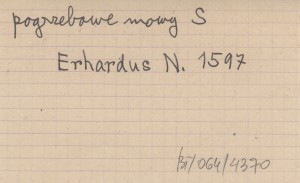 pogrzebowe mowy S
Erhardus N. 1597
/064/4370